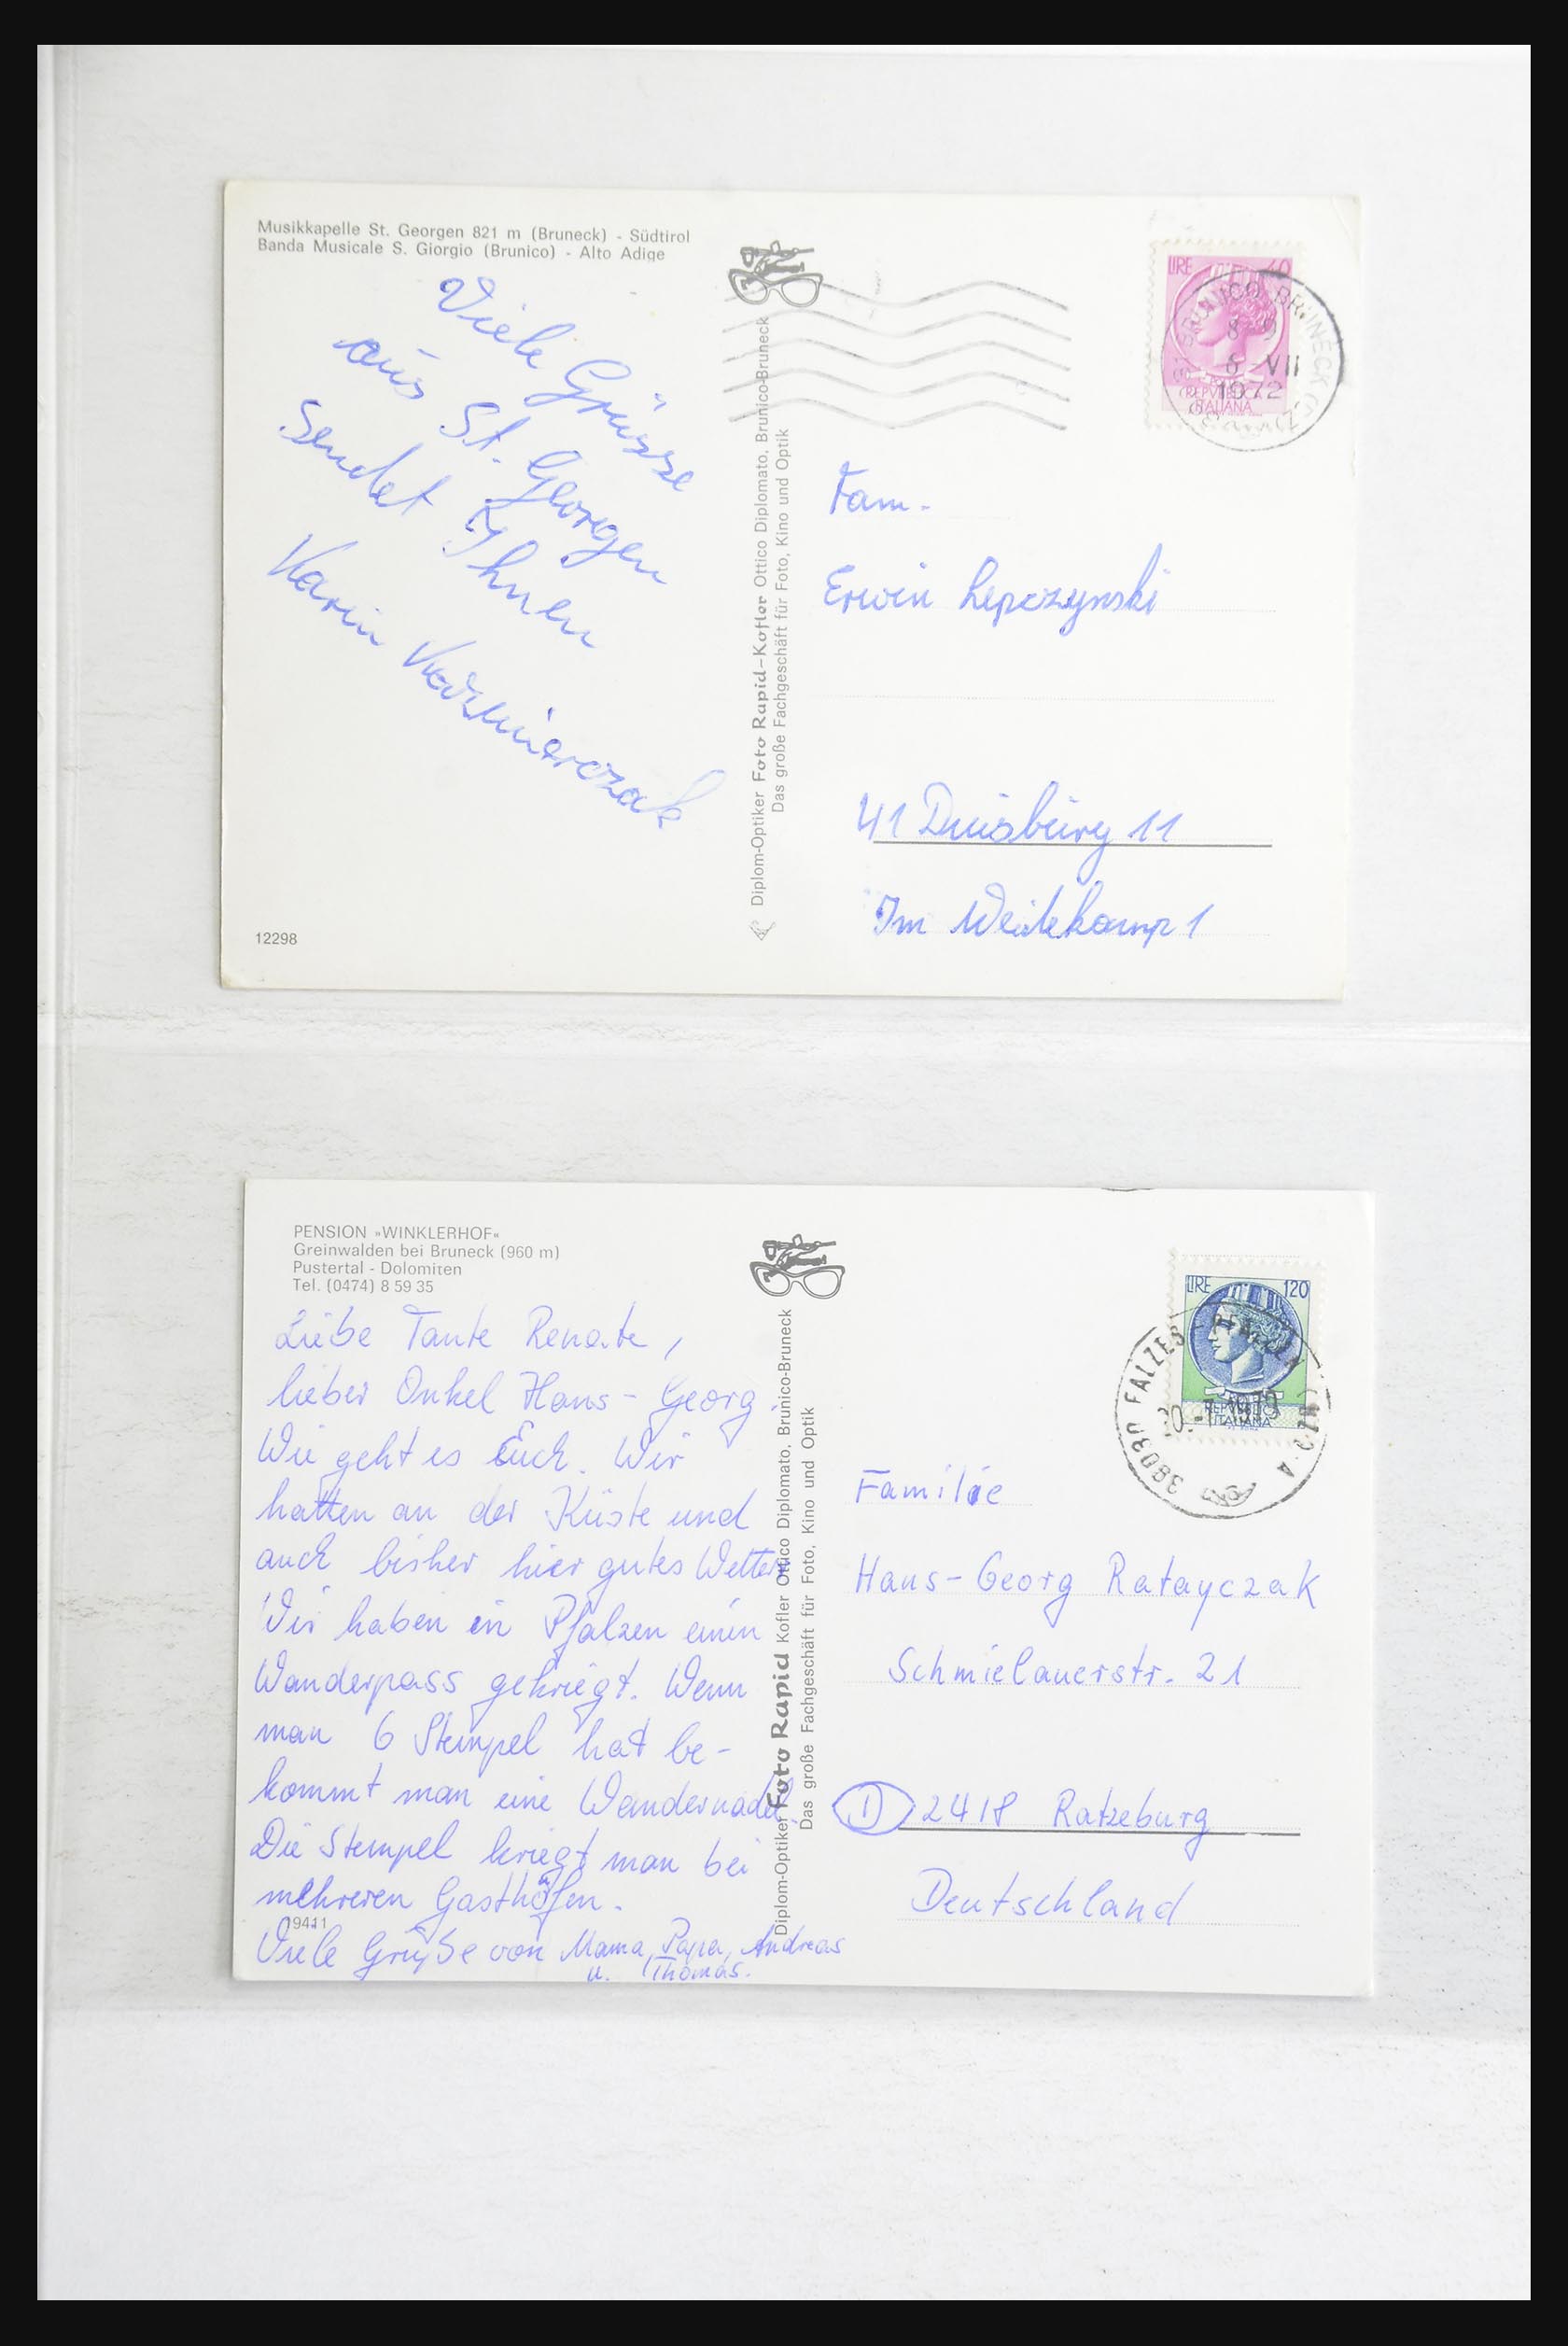 Musikkapelle St. Georgen 821 m (Bruneck) - Südtirol
Banda Musicale S. Giorgio (Brunico) - Alto Adige
Viele Grüsse
aus St. Georgen
sendet Ihnen
Karin Kazmierczak
12298
Diplom-Optiker Foto Rapid-Kofler Ottico Diplomato, Brunico-Bruneck
Das große Fachgeschäft für Foto, Kino und Optik
LIRE 40
REPVBBLICA
ITALIANA
BRUNICO BRUNECK
8 VII
1972
Fam.
Erwin Lepczynski
41 Duisburg 11
Im Weitekamp 1
PENSION »WINKLERHOF«
Greinwalden bei Bruneck (960 m)
Pustertal - Dolomiten
Tel. (0474) 8 59 35
Liebe Tante Renate,
lieber Onkel Hans-Georg.
Wie geht es Euch. Wir
hatten an der Küste und
auch bisher hier gutes Wetter.
Wir haben in Pfalzen einen
Wanderpass gekriegt. Wenn
man 6 Stempel hat be-
kommt man eine Wandernadel.
Die Stempel kriegt man bei
mehreren Gasthöfen.
19411
Viele Grüße von Mama, Papa, Andreas
u. Thomas.
Diplom-Optiker Foto Rapid Kofler Ottico Diplomato, Brunico-Bruneck
Das große Fachgeschäft für Foto, Kino und Optik
LIRE 120
REPVBBLICA
ITALIANA
39030 FALZES
Familie
Hans-Georg Ratayczak
Schmielauerstr. 21
D 2418 Ratzeburg
Deutschland